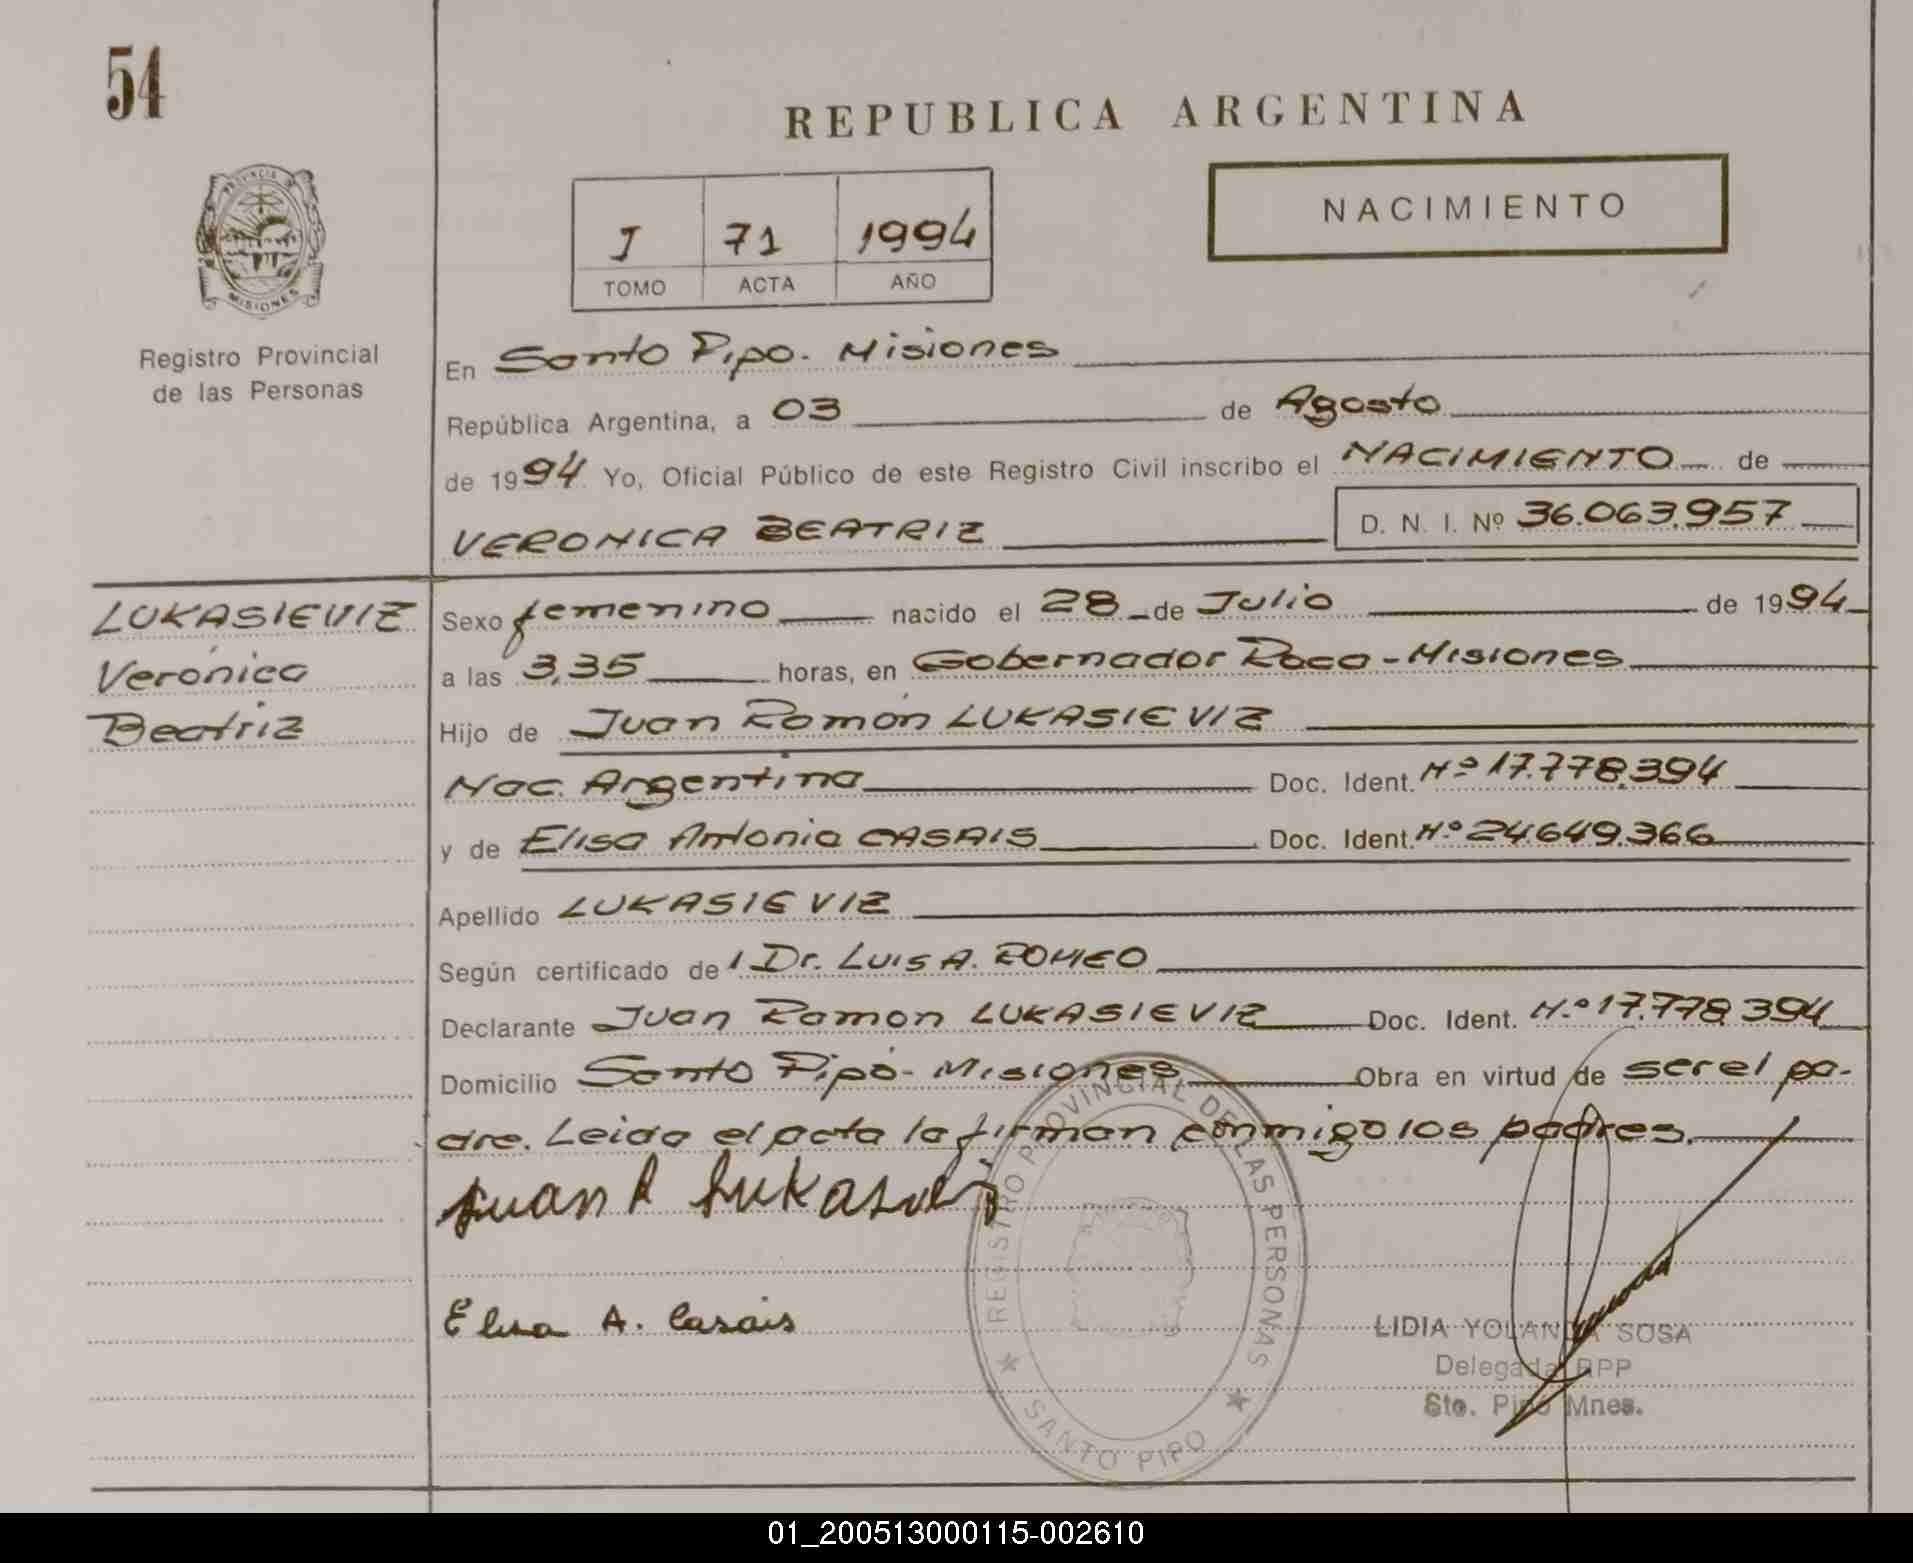 54
REPUBLICA ARGENTINA
PROVINCIA DE
MISIONES
Registro Provincial
de las Personas
I 71 1994
TOMO ACTA AÑO
NACIMIENTO
En Santo Pipo. Misiones
República Argentina, a 03 de Agosto
de 1994 Yo, Oficial Público de este Registro Civil inscribo el NACIMIENTO de
VERONICA BEATRIZ D. N. I. Nº 36.063.957
LUKASIEVIZ
Verónica
Beatriz
Sexo femenino nacido el 28 de Julio de 1994
a las 3,35 horas, en Gobernador Roca - Misiones
Hijo de Juan Ramón LUKASIEVIZ
Nac. Argentina Doc. Ident. Nº 17.778.394
y de Elisa Antonia CASAIS Doc. Ident. Nº 24.649.366
Apellido LUKASIEVIZ
Según certificado de Dr. LUIS A. ROMEO
Declarante Juan Ramon LUKASIEVIZ Doc. Ident. Nº 17.778.394
Domicilio Santo Pipó - Misiones Obra en virtud de ser el pa-
dre. Leida el acta la firman conmigo los padres.
Juan R Lukasieviz
Elisa A. Casais
REGISTRO PROVINCIAL DE LAS PERSONAS
SANTO PIPO
LIDIA YOLANDA SOSA
Delegada RPP
Sto. Pipó Mnes.
01_200513000115-002610